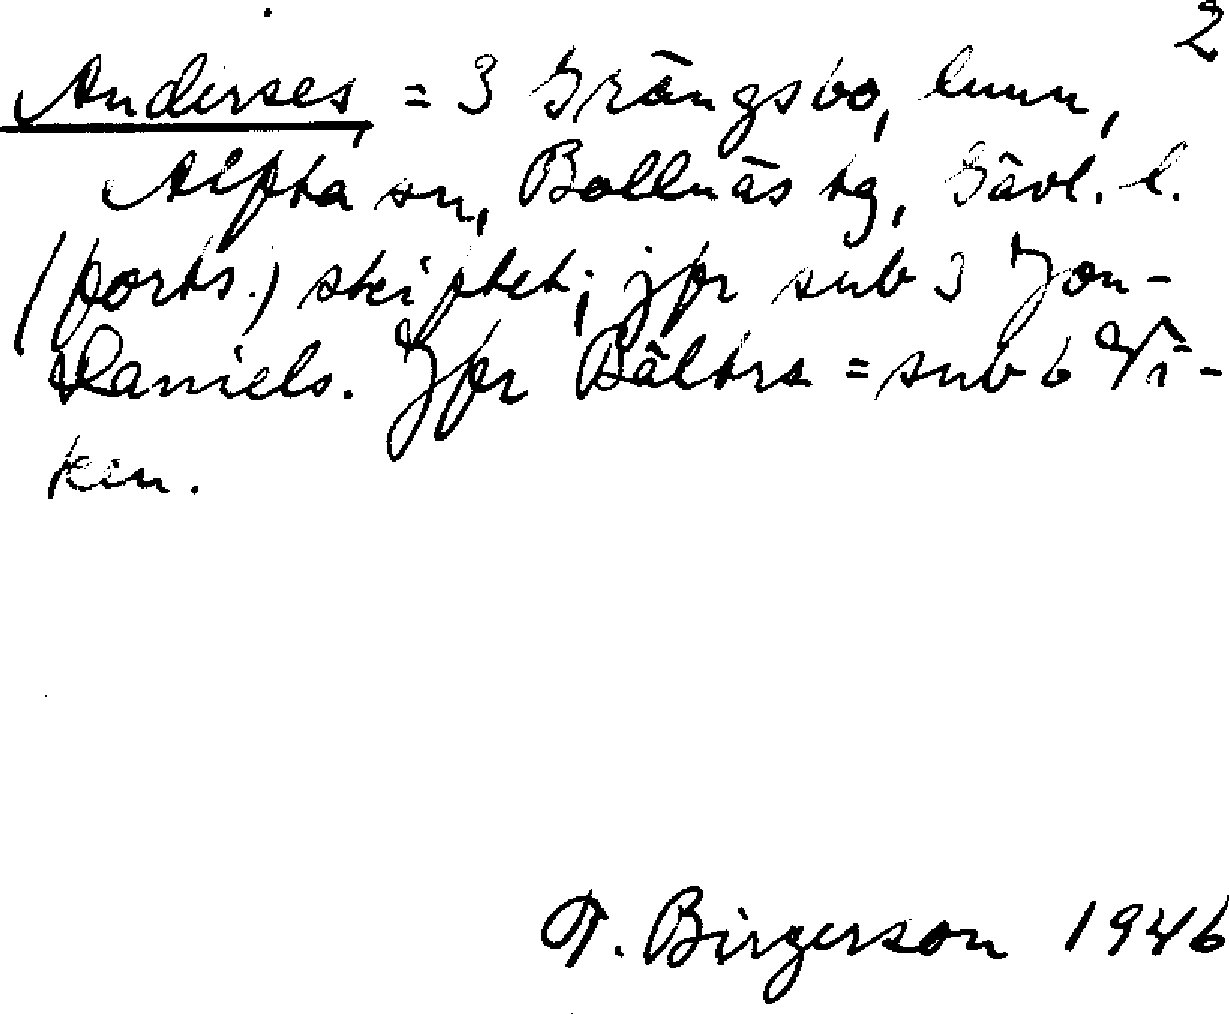 2
Anderses, = 3 Grängsbo, hmn,
Alfta sn, Bollnäs tg, Gävl. l.
(forts.) skiftet; jfr sub 3 Jon-
Daniels. Jfr Bältrs = sub 6 Vi-
ken.
T. Birgerson 1946